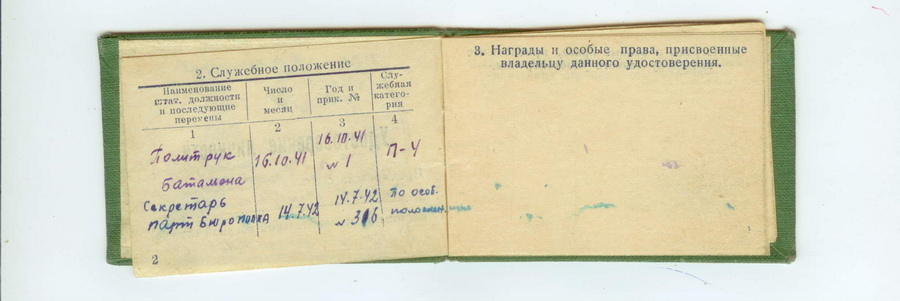 2. Служебное положение
Наименование штат. должности и последующие перемены
Число и месяц
Год и прик. №
Служебная категория
1 2 3 4
Политрук 16.10.41 16.10.41 П-4
Баталиона №1
Секретарь 14.7.42 По особ.
парт бюро полка 14.7.42 №316 положению
2
3. Награды и особые права, присвоенные
владельцу данного удостоверения.